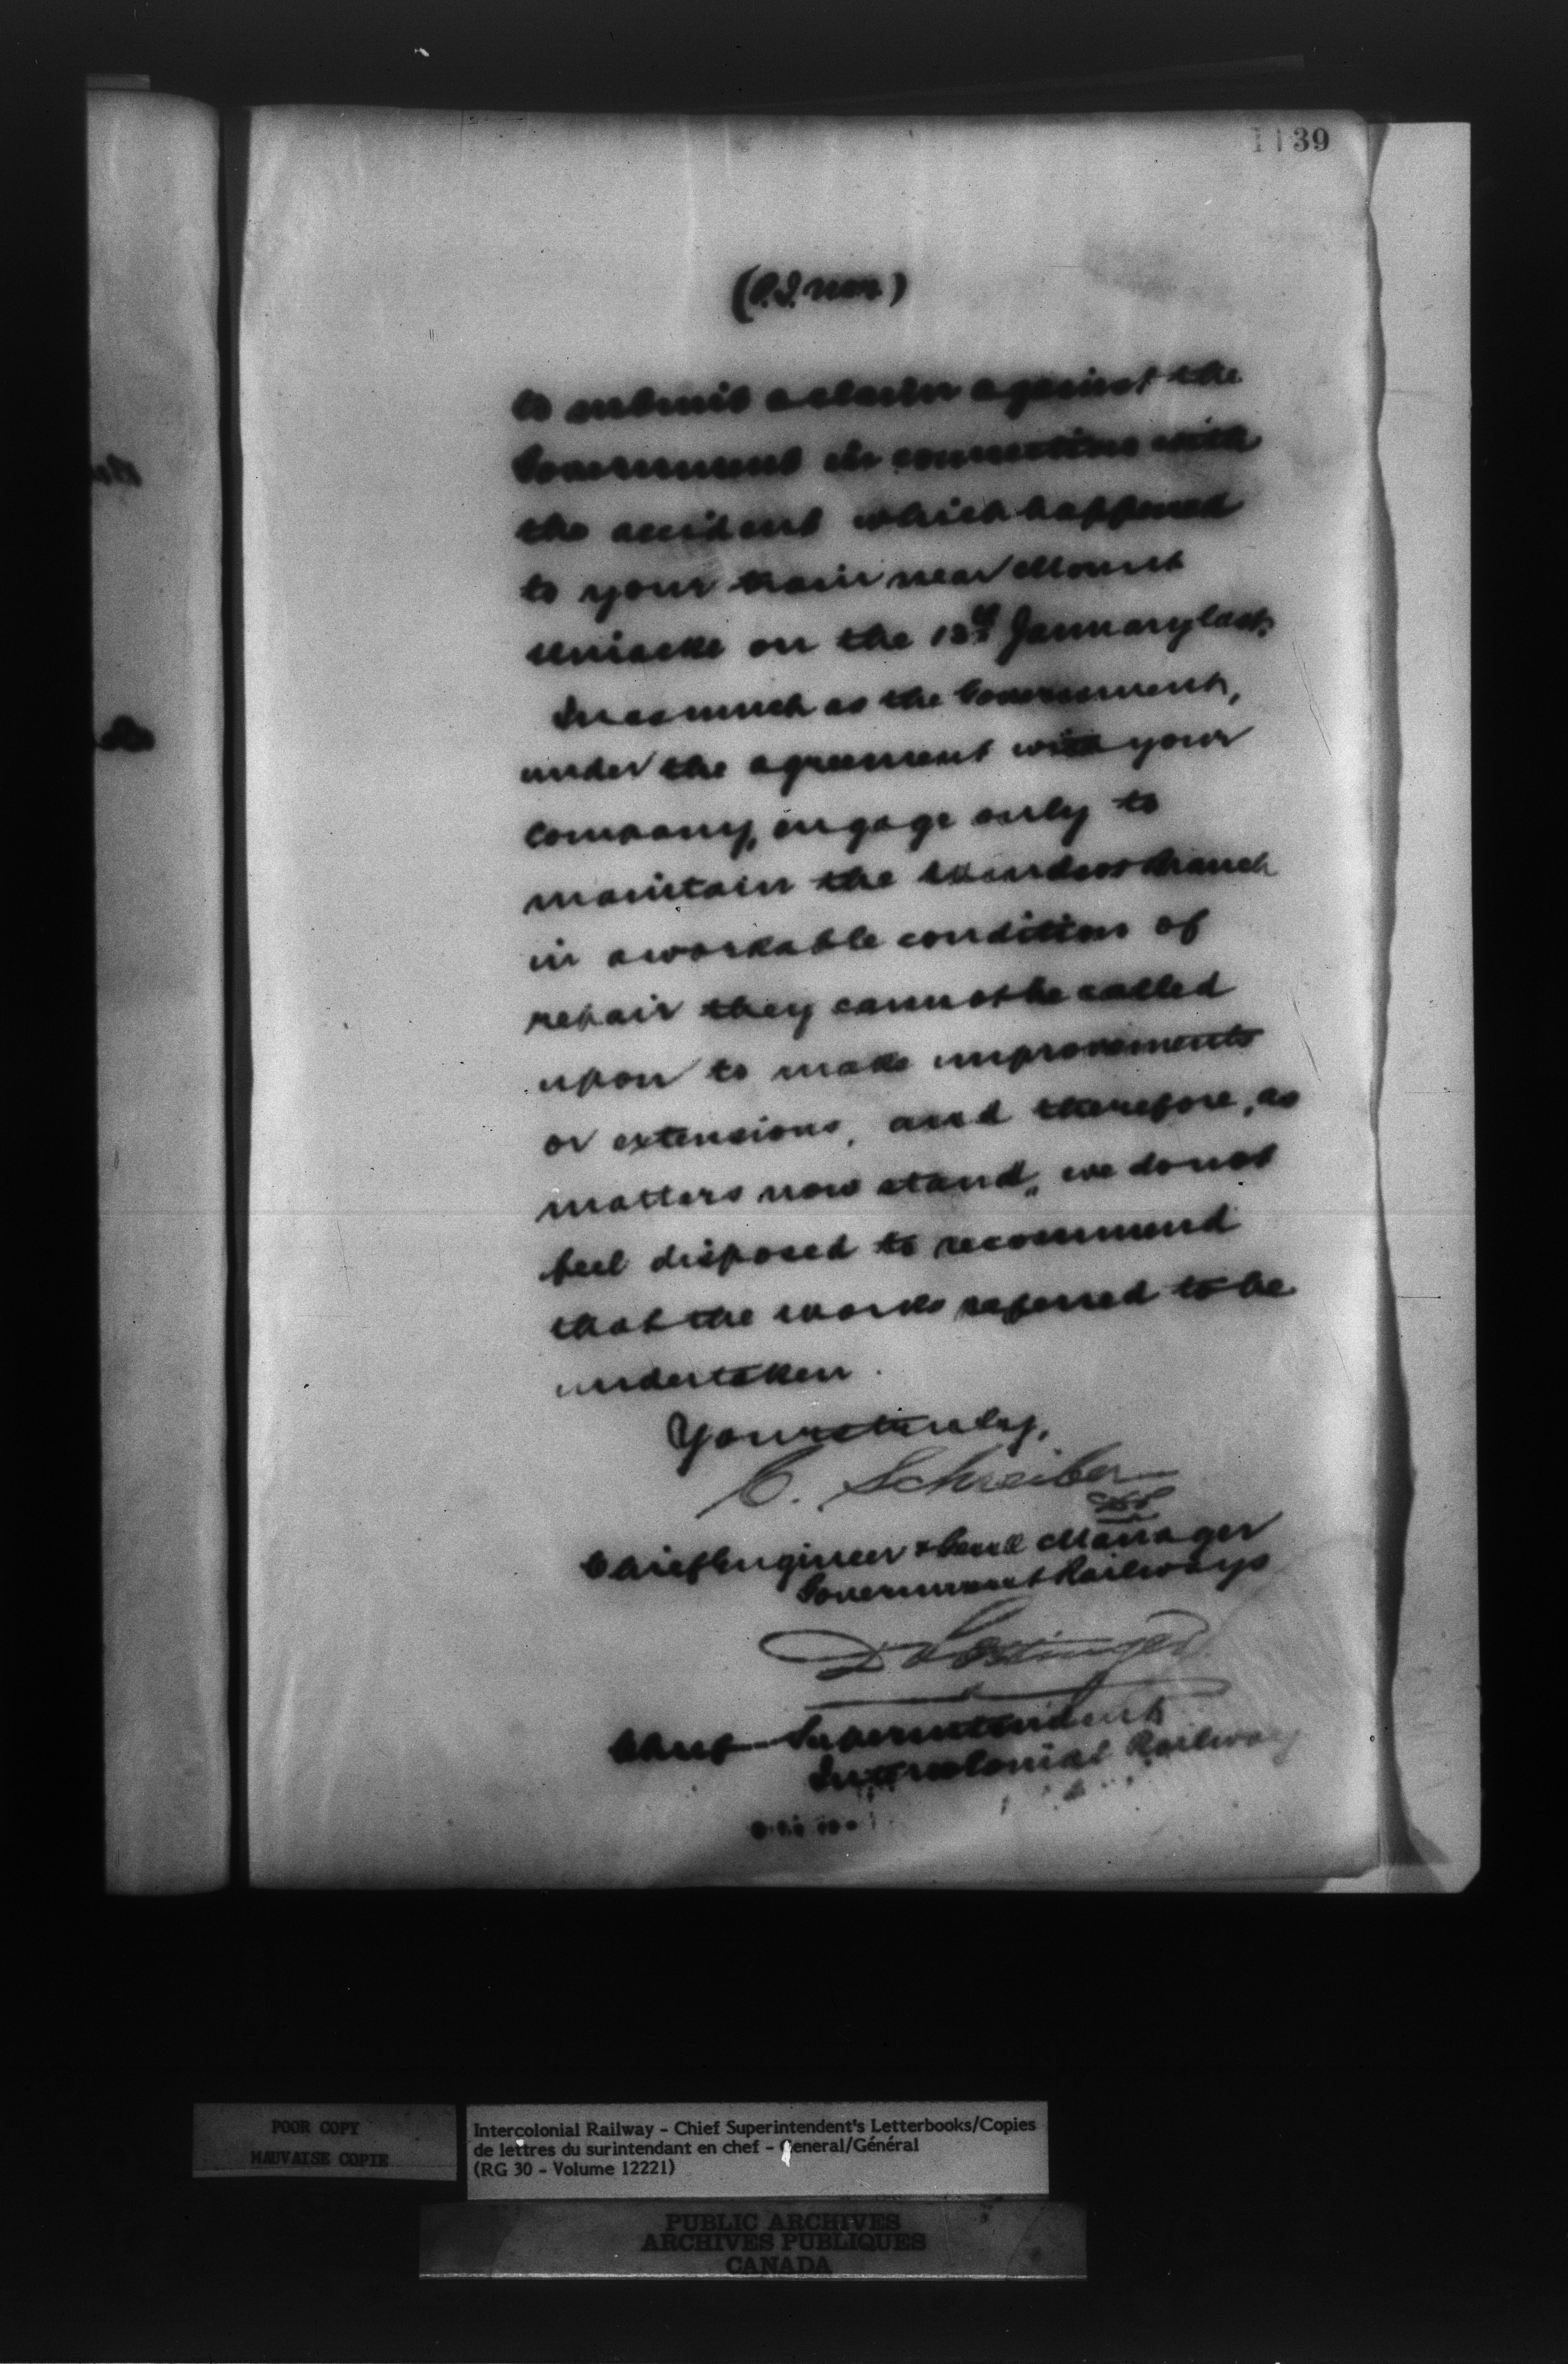 39
to submit a claim against the
Government in connection with
the accident which happened
to your train near Mount
Uniacke on the 13th January last.
Inasmuch as the Government,
under the agreement with your
company, engage only to
maintain the Windsor Branch
in a workable condition of
repair they cannot be called
upon to make improvements
or extensions, and therefore, as
matters now stand, we do not
feel disposed to recommend
that the works referred to be
undertaken.
Yours truly,
C. Schreiber
Chief Engineer & Genl Manager
Government Railways
D Pottinger
Chief Superintendent
Intercolonial Railway
POOR COPY
MAUVAISE COPIE
Intercolonial Railway - Chief Superintendent's Letterbooks/Copies
de lettres du surintendant en chef - General/Général
(RG 30 - Volume 12221)
PUBLIC ARCHIVES
ARCHIVES PUBLIQUES
CANADA